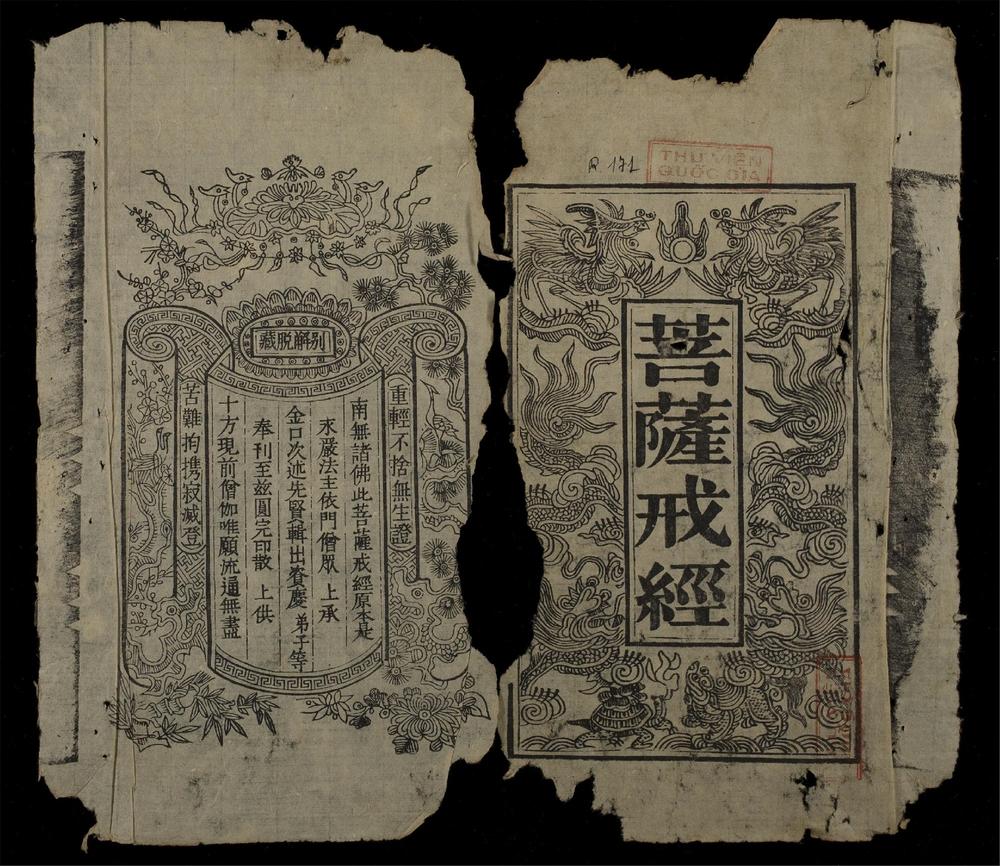 R.171
THƯ VIỆN
QUỐC GIA
菩薩戒經
别解脫藏
重輕不捨無生證
南無諸佛此菩薩戒經原本是
永嚴法主依門僧眾 上承
金口次述先賢輯出慶 弟子等
奉刊至兹圓完印散 上供
十方現前僧伽唯願流通無盡
苦難拘携寂滅登